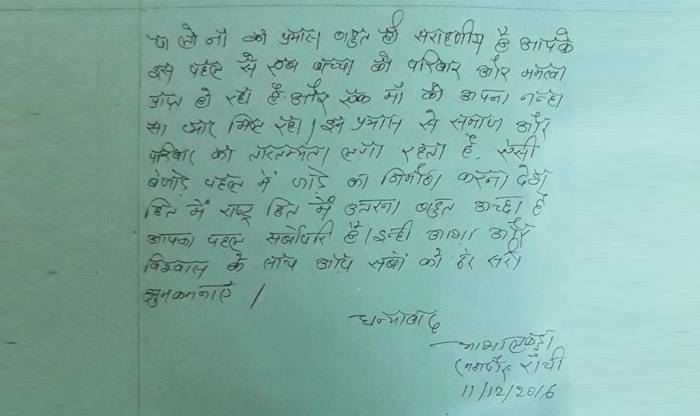 पा लो ना का प्रयास बहुत ही सराहणीय है आपके
इस पहल से एक बच्चा को परिवार और ममता
प्राप्त हो रहा है और एक माँ को अपना नन्हा
सा प्यार मिल रहा। इस प्रयास से समाज और
परिवार को तारतम्यता लगा रहता है, ऐसी
बेजोड़ पहल में जोड़े का निर्माण करना देश
हित में राष्ट्र हित में उतरना बहुत अच्छा है
आपका पहल सर्बोपरि है। इन्ही आशा और
विश्वास के साथ आप सबों को ढेर सारी
शुभकामनाएं।
धन्यावाद
आशा लकड़ा
महापौर राँची
11/12/2016